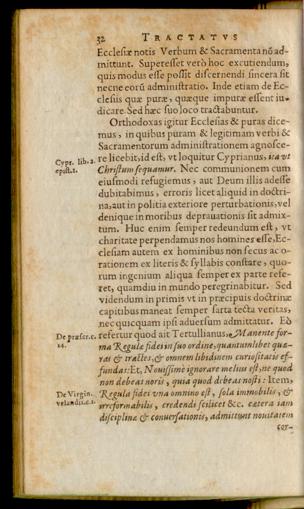 32 TRACTATVS
Ecclesiæ notis Verbum & Sacramenta nō ad-
mittunt. Superesset verò hoc excutiendum,
quis modus esse possit discernendi sincera sit
necne eorū administratio. Inde etiam de Ec-
clesiis quæ puræ, quæque impuræ essent iu-
dicare. Sed hæc suo loco tractabuntur.
Orthodoxas igitur Ecclesias & puras dice-
mus, in quibus puram & legitimam verbi &
Sacramentorum administrationem agnosce-
Cypr. lib. 2.
epist. 2.
re licebit, id est, vt loquitur Cyprianus, ita vt
Christum sequamur. Nec communionem cum
eiusmodi refugiemus, aut Deum illis adesse
dubitabimus, erroris licet aliquid in doctri-
na, aut in politia exteriore perturbationis, vel
denique in moribus deprauationis sit admix-
tum. Huc enim semper redeundum est, vt
charitate perpendamus nos homines esse, Ec-
clesiam autem ex hominibus non secus ac o-
rationem ex literis & syllabis constare, quo-
rum ingenium aliqua semper ex parte refe-
ret, quamdiu in mundo peregrinabitur. Sed
videndum in primis vt in præcipuis doctrinæ
capitibus maneat semper sarta tecta veritas,
nec quicquam ipsi aduersum admittatur. Eò
De præscr. c.
14.
refertur quod ait Tertullianus. Manente for-
ma Regulæ fidei in suo ordine, quantumlibet quæ-
ras & tractes, & omnem libidinem curiositatis ef-
fundas: Et, Nouissimè ignorare melius est, ne quod
non debeas noris, quia quod debeas nosti: Item,
De Virgin.
velandis. c. 1.
Regula fidei vna omnino est, sola immobilis, &
irreformabilis, credendi scilicet &c. cætera iam
disciplinæ & conuersationis, admittunt nouitatem
cor-